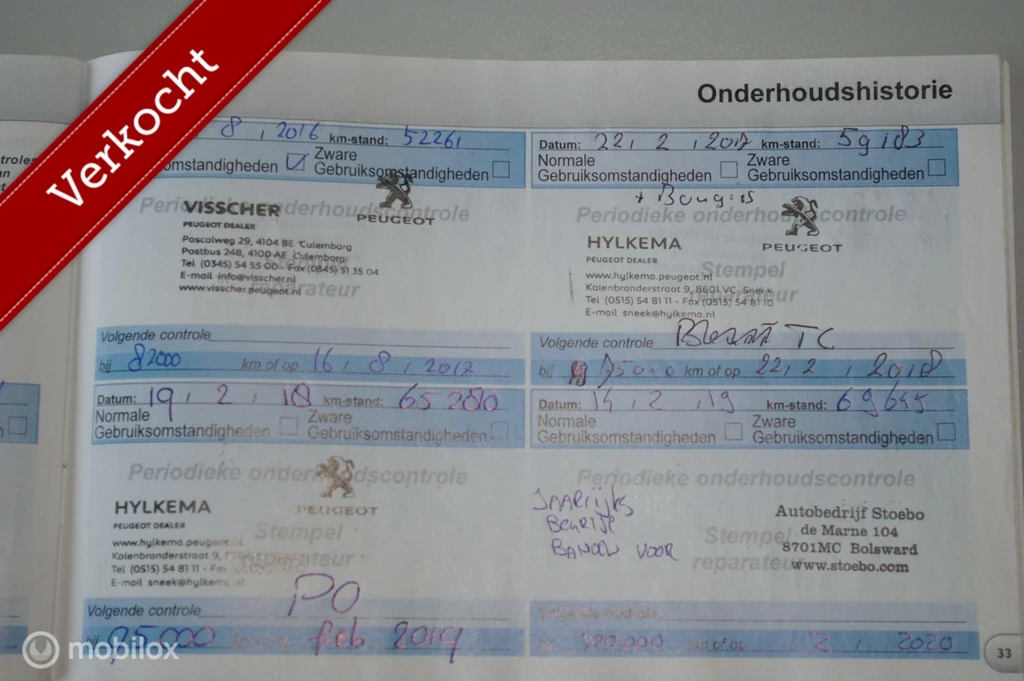 Verkocht
Onderhoudshistorie
8 , 2016 km-stand: 52261
omstandigheden
Zware
Gebruiksomstandigheden
Periodieke onderhoudscontrole
VISSCHER
PEUGEOT DEALER
PEUGEOT
Pascalweg 29, 4104 BE Culemborg
Postbus 248, 4100 AE Culemborg
Tel (0345) 54 55 00 - Fax (0345) 51 35 04
E-mail info@visscher.nl
www.visscher.peugeot.nl
reparateur
Volgende controle
bij 82000 km of op 16 , 8 , 2017
Datum: 22, 2 , 2017 km-stand: 59183
Normale
Gebruiksomstandigheden
Zware
Gebruiksomstandigheden
+ Bougies
Periodieke onderhoudscontrole
HYLKEMA
PEUGEOT DEALER
PEUGEOT
Stempel
reparateur
www.hylkema.peugeot.nl
Kolenbranderstraat 9, 8601 VC Sneek
Tel (0515) 54 81 11 - Fax (0515) 54 81 10
E-mail sneek@hylkema.nl
Volgende controle
bij km of op 22, 2 , 2018
Datum: 19 , 2 , 18 km-stand: 65280
Normale
Gebruiksomstandigheden
Zware
Gebruiksomstandigheden
Periodieke onderhoudscontrole
HYLKEMA
PEUGEOT DEALER
PEUGEOT
Stempel
reparateur
www.hylkema.peugeot
Kolenbranderstraat 9,
Tel (0515) 54 81 11 - Fax
E-mail sneek@hylkema.nl
PO
Volgende controle
bij 95.000 feb 2019
Datum: 14 , 2 , 19 km-stand: 69645
Normale
Gebruiksomstandigheden
Zware
Gebruiksomstandigheden
Periodieke onderhoudscontrole
JAARlijks
VOOR
Stempel
reparateur
Autobedrijf Stoebo
de Marne 104
8701MC Bolsward
www.stoebo.com
Volgende controle
2 , 2020
33
mobilox